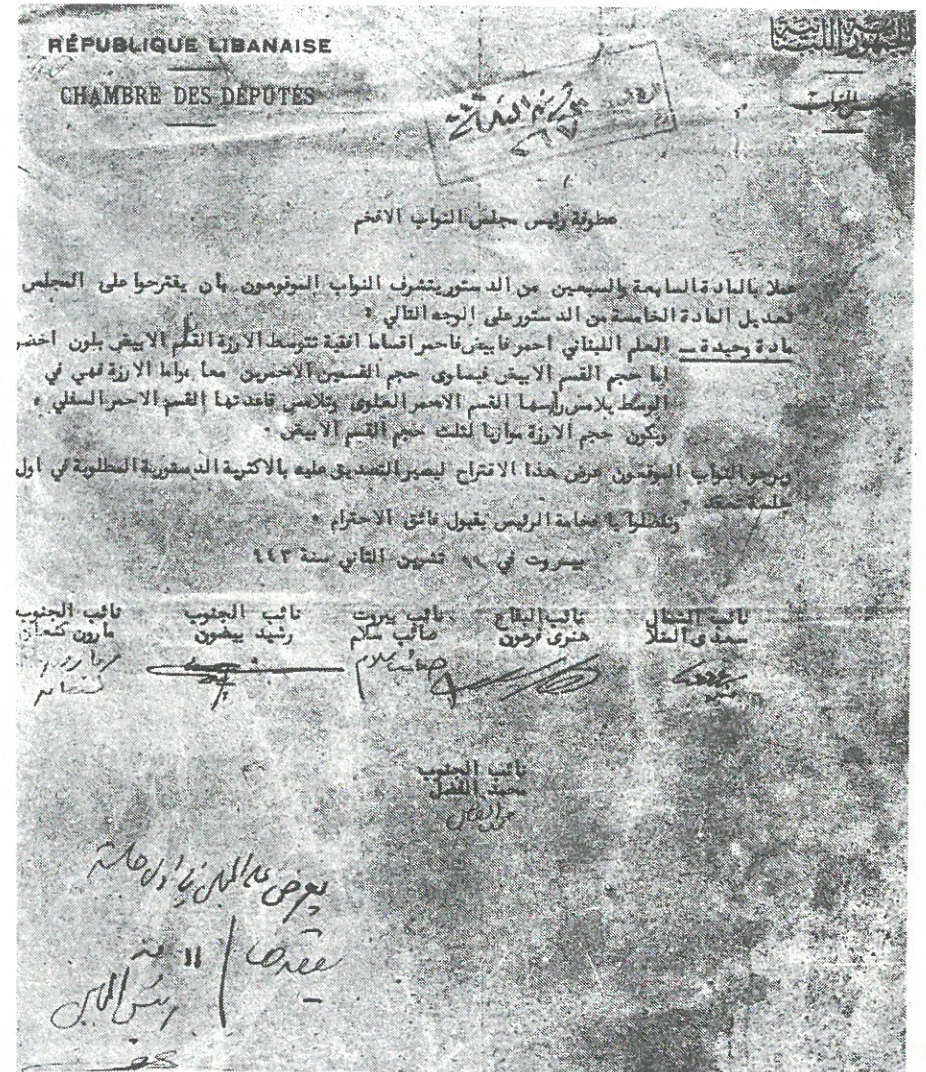 RÉPUBLIQUE LIBANAISE
الجمهورية اللبنانية
CHAMBRE DES DÉPUTÉS
مجلس النواب
عطوفة رئيس مجلس النواب الافخم
عملا بالمادة السابعة والسبعين من الدستور يتشرف النواب الموقعون بأن يقترحوا على المجلس
تعديل المادة الخامسة من الدستور على الوجه التالي :
مادة وحيدة ــ العلم اللبناني احمر فابيض فاحمر اقساما افقية تتوسط الارزة القسم الابيض بلون اخضر
اما حجم القسم الابيض فيساوى حجم القسمين الاحمرين معا واما الارزة فهي في
الوسط يلامس رأسها القسم الاحمر العلوى وتلامس قاعدتها القسم الاحمر السفلي .
ويكون حجم الارزة موازيا لثلث حجم القسم الابيض .
ويرجو النواب الموقعون عرض هذا الاقتراح ليصير التصديق عليه بالاكثرية الدستورية المطلوبة في اول
جلسة تعقد .
وتفضلوا يا فخامة الرئيس بقبول فائق الاحترام .
بيروت في ١١ تشرين الثاني سنة ٩٤٣
نائب الشمال نائب البقاع نائب بيروت نائب الجنوب نائب الجنوب
سعدى المنلا هنرى فرعون صائب سلام رشيد بيضون مارون كنعان
صائب سلام مارون
كنعان
نائب الجنوب
محمد الفضل
محمد الفضل
يعرض على المجلس في اول جلسة
يعقدها
١١ منه
رئيس المجلس